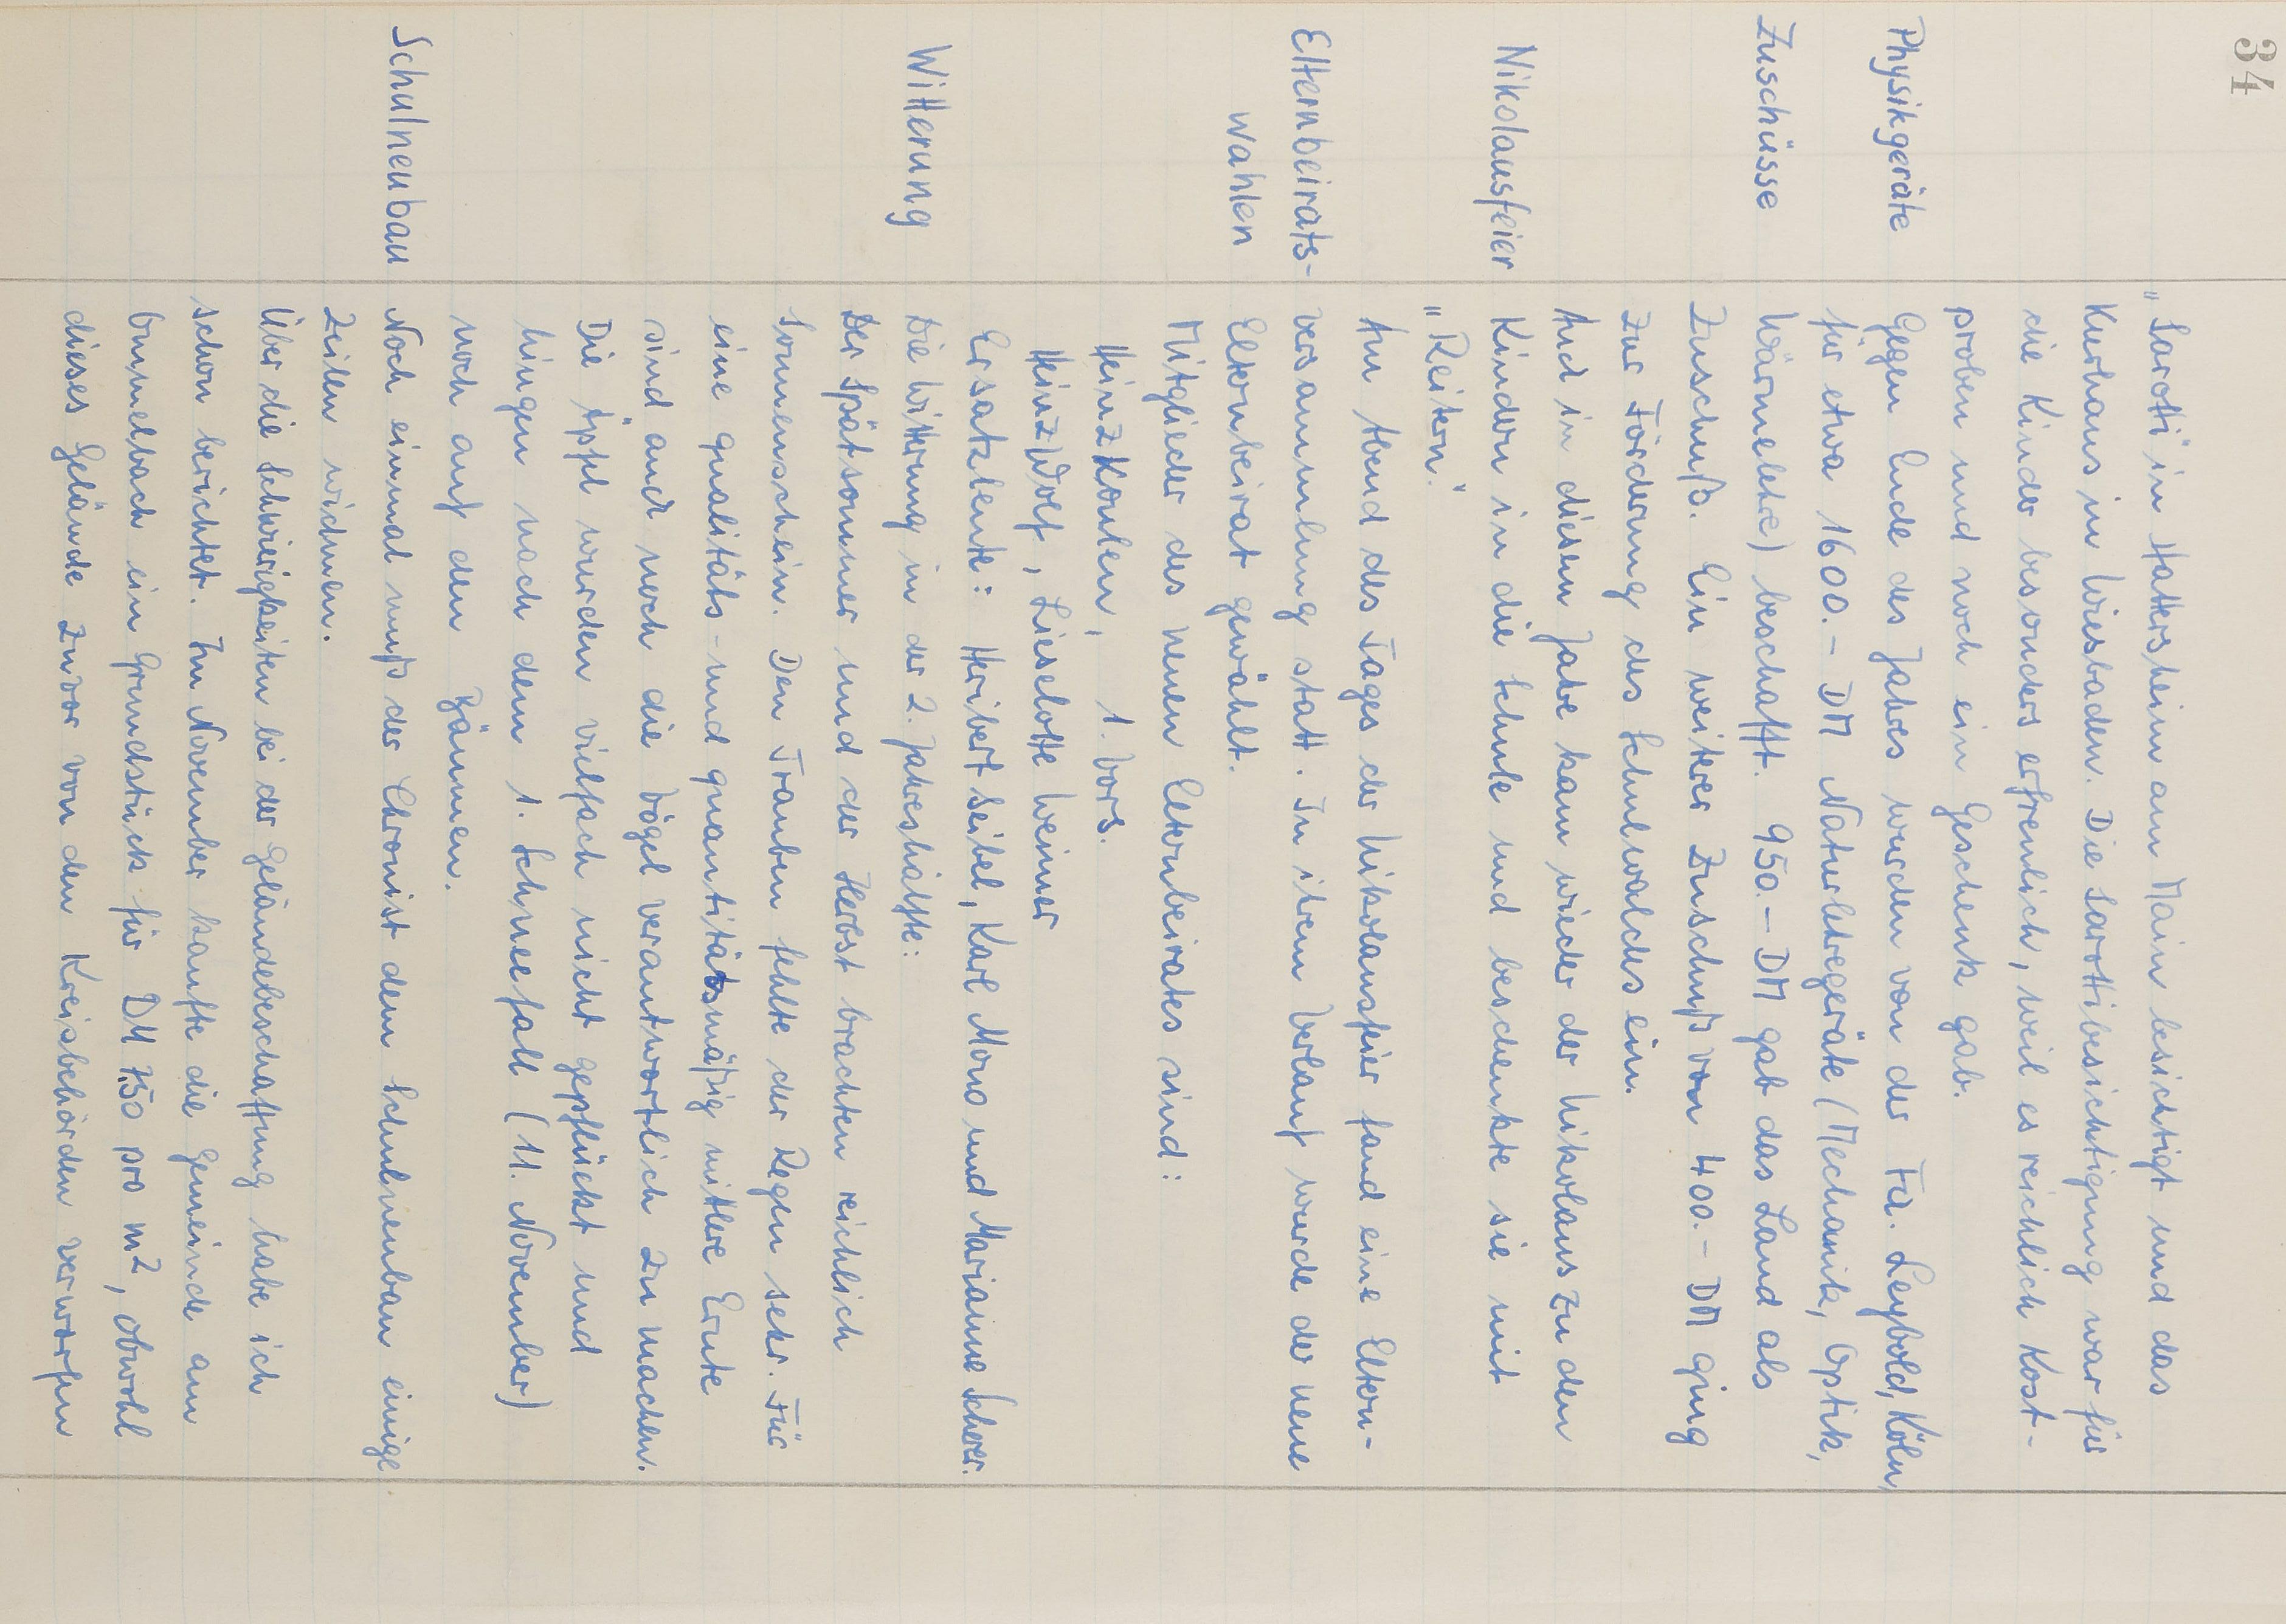 34
„Sarotti" in Hattersheim am Main besichtigt und das
Kurhaus in Wiesbaden. Die Sarottibesichtigung war für
die Kinder besonders erfreulich, weil es reichlich Kost-
proben und noch ein Geschenk gab.
Physikgeräte
Gegen Ende des Jahres wurden von der Fa. Leybold, Köln,
für etwa 1600.- DM Naturlehregeräte (Mechanik, Optik,
Zuschüsse
Wärmelehre) beschafft. 950.- DM gab das Land als
Zuschuß. Ein weiterer Zuschuß von 400.- DM ging
zur Förderung des Schulwaldes ein.
Auch in diesem Jahre kam wieder der Nikolaus zu den
Nikolausfeier
Kindern in die Schule und beschenkte sie mit
„Reitern".
Am Abend des Tages der Nikolausfeier fand eine Eltern-
Elternbeirats-
versammlung statt. In ihrem Verlauf wurde der neue
wahlen
Elternbeirat gewählt.
Mitglieder des neuen Elternbeirates sind:
Heinz Koulen, 1. Vors.
Heinz Wolf, Lieselotte Weimer
Ersatzleute: Heribert Seibel, Karl Mono und Marianne Scherer.
Witterung
Die Witterung in der 2. Jahreshälfte:
Der Spätsommer und der Herbst brachten reichlich
Sonnenschein. Den Trauben fehlte der Regen sehr. Für
eine qualitäts- und quantitätsmäßig mittlere Ernte
sind auch noch die Vögel verantwortlich zu machen.
Die Äpfel wurden vielfach nicht gepflückt und
hingen nach dem 1. Schneefall (11. November)
noch auf den Bäumen.
Schulneubau
Noch einmal muß der Chronist dem Schulneubau einige
Zeilen widmen.
Über die Schwierigkeiten bei der Geländebeschaffung habe ich
schon berichtet. Im November kaufte die Gemeinde am
Bummelbach ein Grundstück für DM 7,50 pro m², obwohl
dieses Gelände zuvor von den Kreisbehörden verworfen